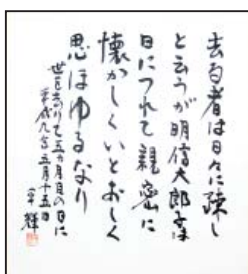 去る者は日々に疎し
と云うが明信太郎子は
日につれて親密に
懐かしくいとおしく
思ほゆるなり
世を去りて五ヵ月目の日に
平成九年五月十五日